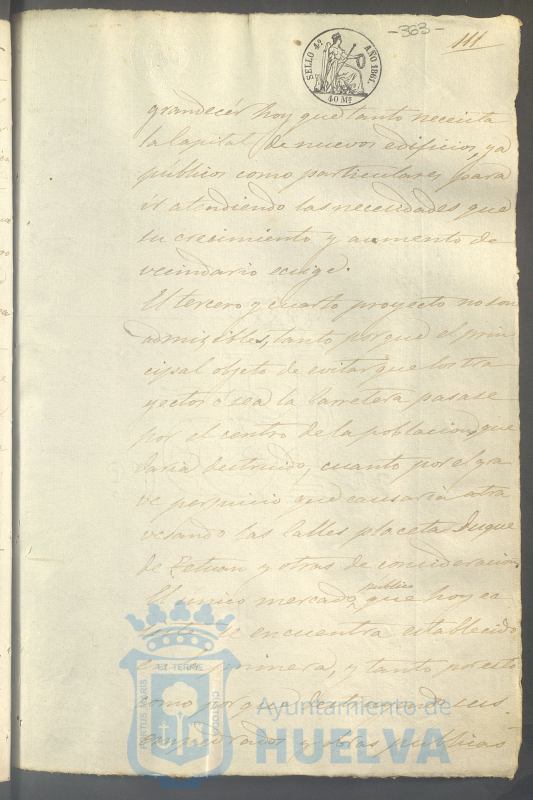 -363-
111
SELLO 4º AÑO 1861.
40 Mº
grandecér hoy que tanto necesita
la Capital de nuevos edificios, ya
públicos como particulares para
ir atendiendo las necesidades que
su crecimiento y aumento de
vecindario ecsige.
El tercero y cuarto proyecto no son
admisibles, tanto porque el prin
cipal objeto de evitar que los tra
yectos ó sea la Carretera pasase
por el centro de la poblacion, que
daria destruido, cuanto por el gra
ve perjuicio que causaria atra
vesando las Calles placeta Duque
de Tetuan y otras de consideracion.
El unico mercado publico que hoy ec
siste se encuentra establecido
en la primera, y tanto por esto
como por que destruiendo
y obras publicas
PORTUS MARIS
ET TERRE
CUSTODIA
Ayuntamiento de
HUELVA